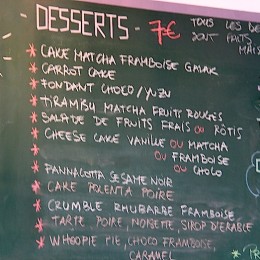 - DESSERTS - 7€
TOUS LES DE
SONT FAITS
MAIS
* CAKE MATCHA FRAMBOISE
* CARROT CAKE
* FONDANT CHOCO/YUZU
* TIRAMISU MATCHA FRUITS ROUGES
* SALADE DE FRUITS FRAIS OU RÔTIS
* CHEESE CAKE VANILLE OU MATCHA
* OU FRAMBOISE
OU CHOCO
* PANNACOTTA SESAME NOIR
* CAKE POLENTA POIRE
* CRUMBLE RHUBARBE FRAMBOISE
* TARTE POIRE, NOISETTE, SIROP D'ERABLE
* WHOOPIE PIE, CHOCO FRAMBOISE,
CARAMEL